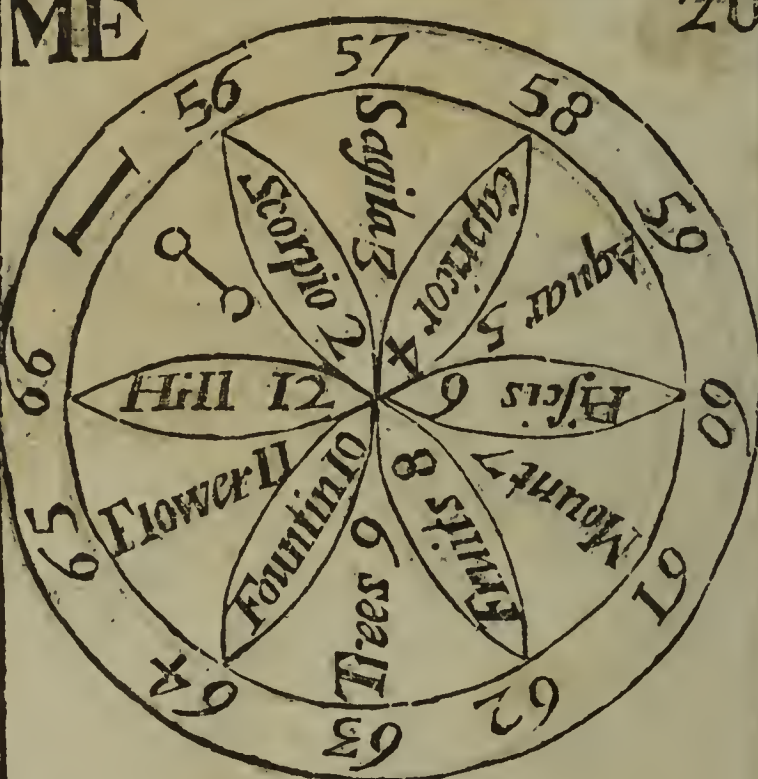 ME
20
I
56
57
58
59
60
61
62
63
64
65
66
☍
Scorpio 2
Sagita 3
Capricor 4
Aquar 5
Piſcis 6
Mount 7
Fruits 8
Trees 9
Fountin 10
Flower 11
Hill 12